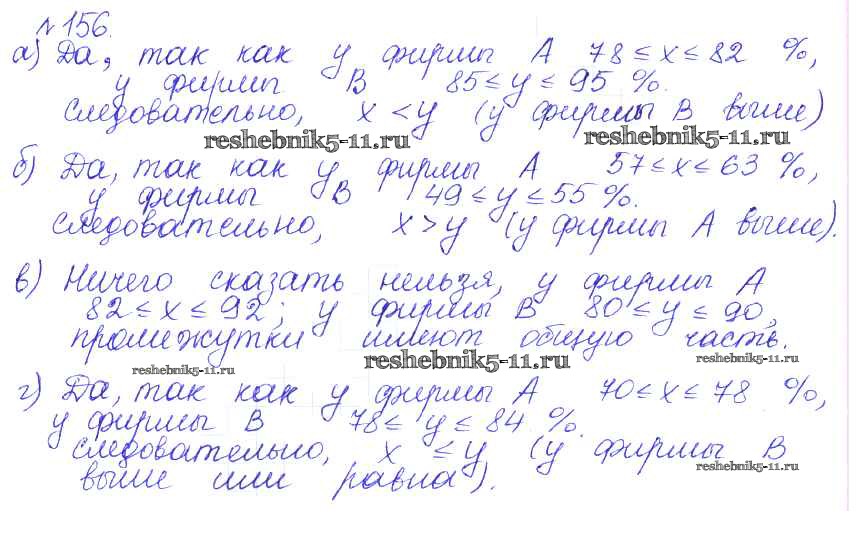 №156.
а) Да, так как у фирмы А 78 ≤ x ≤ 82 %,
у фирмы В 85 ≤ y ≤ 95 %.
следовательно, x < y (у фирмы В выше)
reshebnik5-11.ru reshebnik5-11.ru
б) Да, так как у фирмы А 57 ≤ x ≤ 63 %,
у фирмы В 49 ≤ y ≤ 55 %.
следовательно, x > y (у фирмы А выше).
в) Ничего сказать нельзя, у фирмы А
82 ≤ x ≤ 92; у фирмы В 80 ≤ y ≤ 90,
промежутки имеют общую часть.
reshebnik5-11.ru reshebnik5-11.ru reshebnik5-11.ru
г) Да, так как у фирмы А 70 ≤ x ≤ 78 %,
у фирмы В 78 ≤ y ≤ 84 %.
следовательно, x ≤ y (у фирмы В
reshebnik5-11.ru
выше или равна).